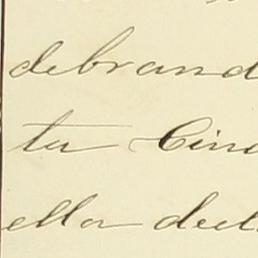 debrand
ta Cinc
ella decl